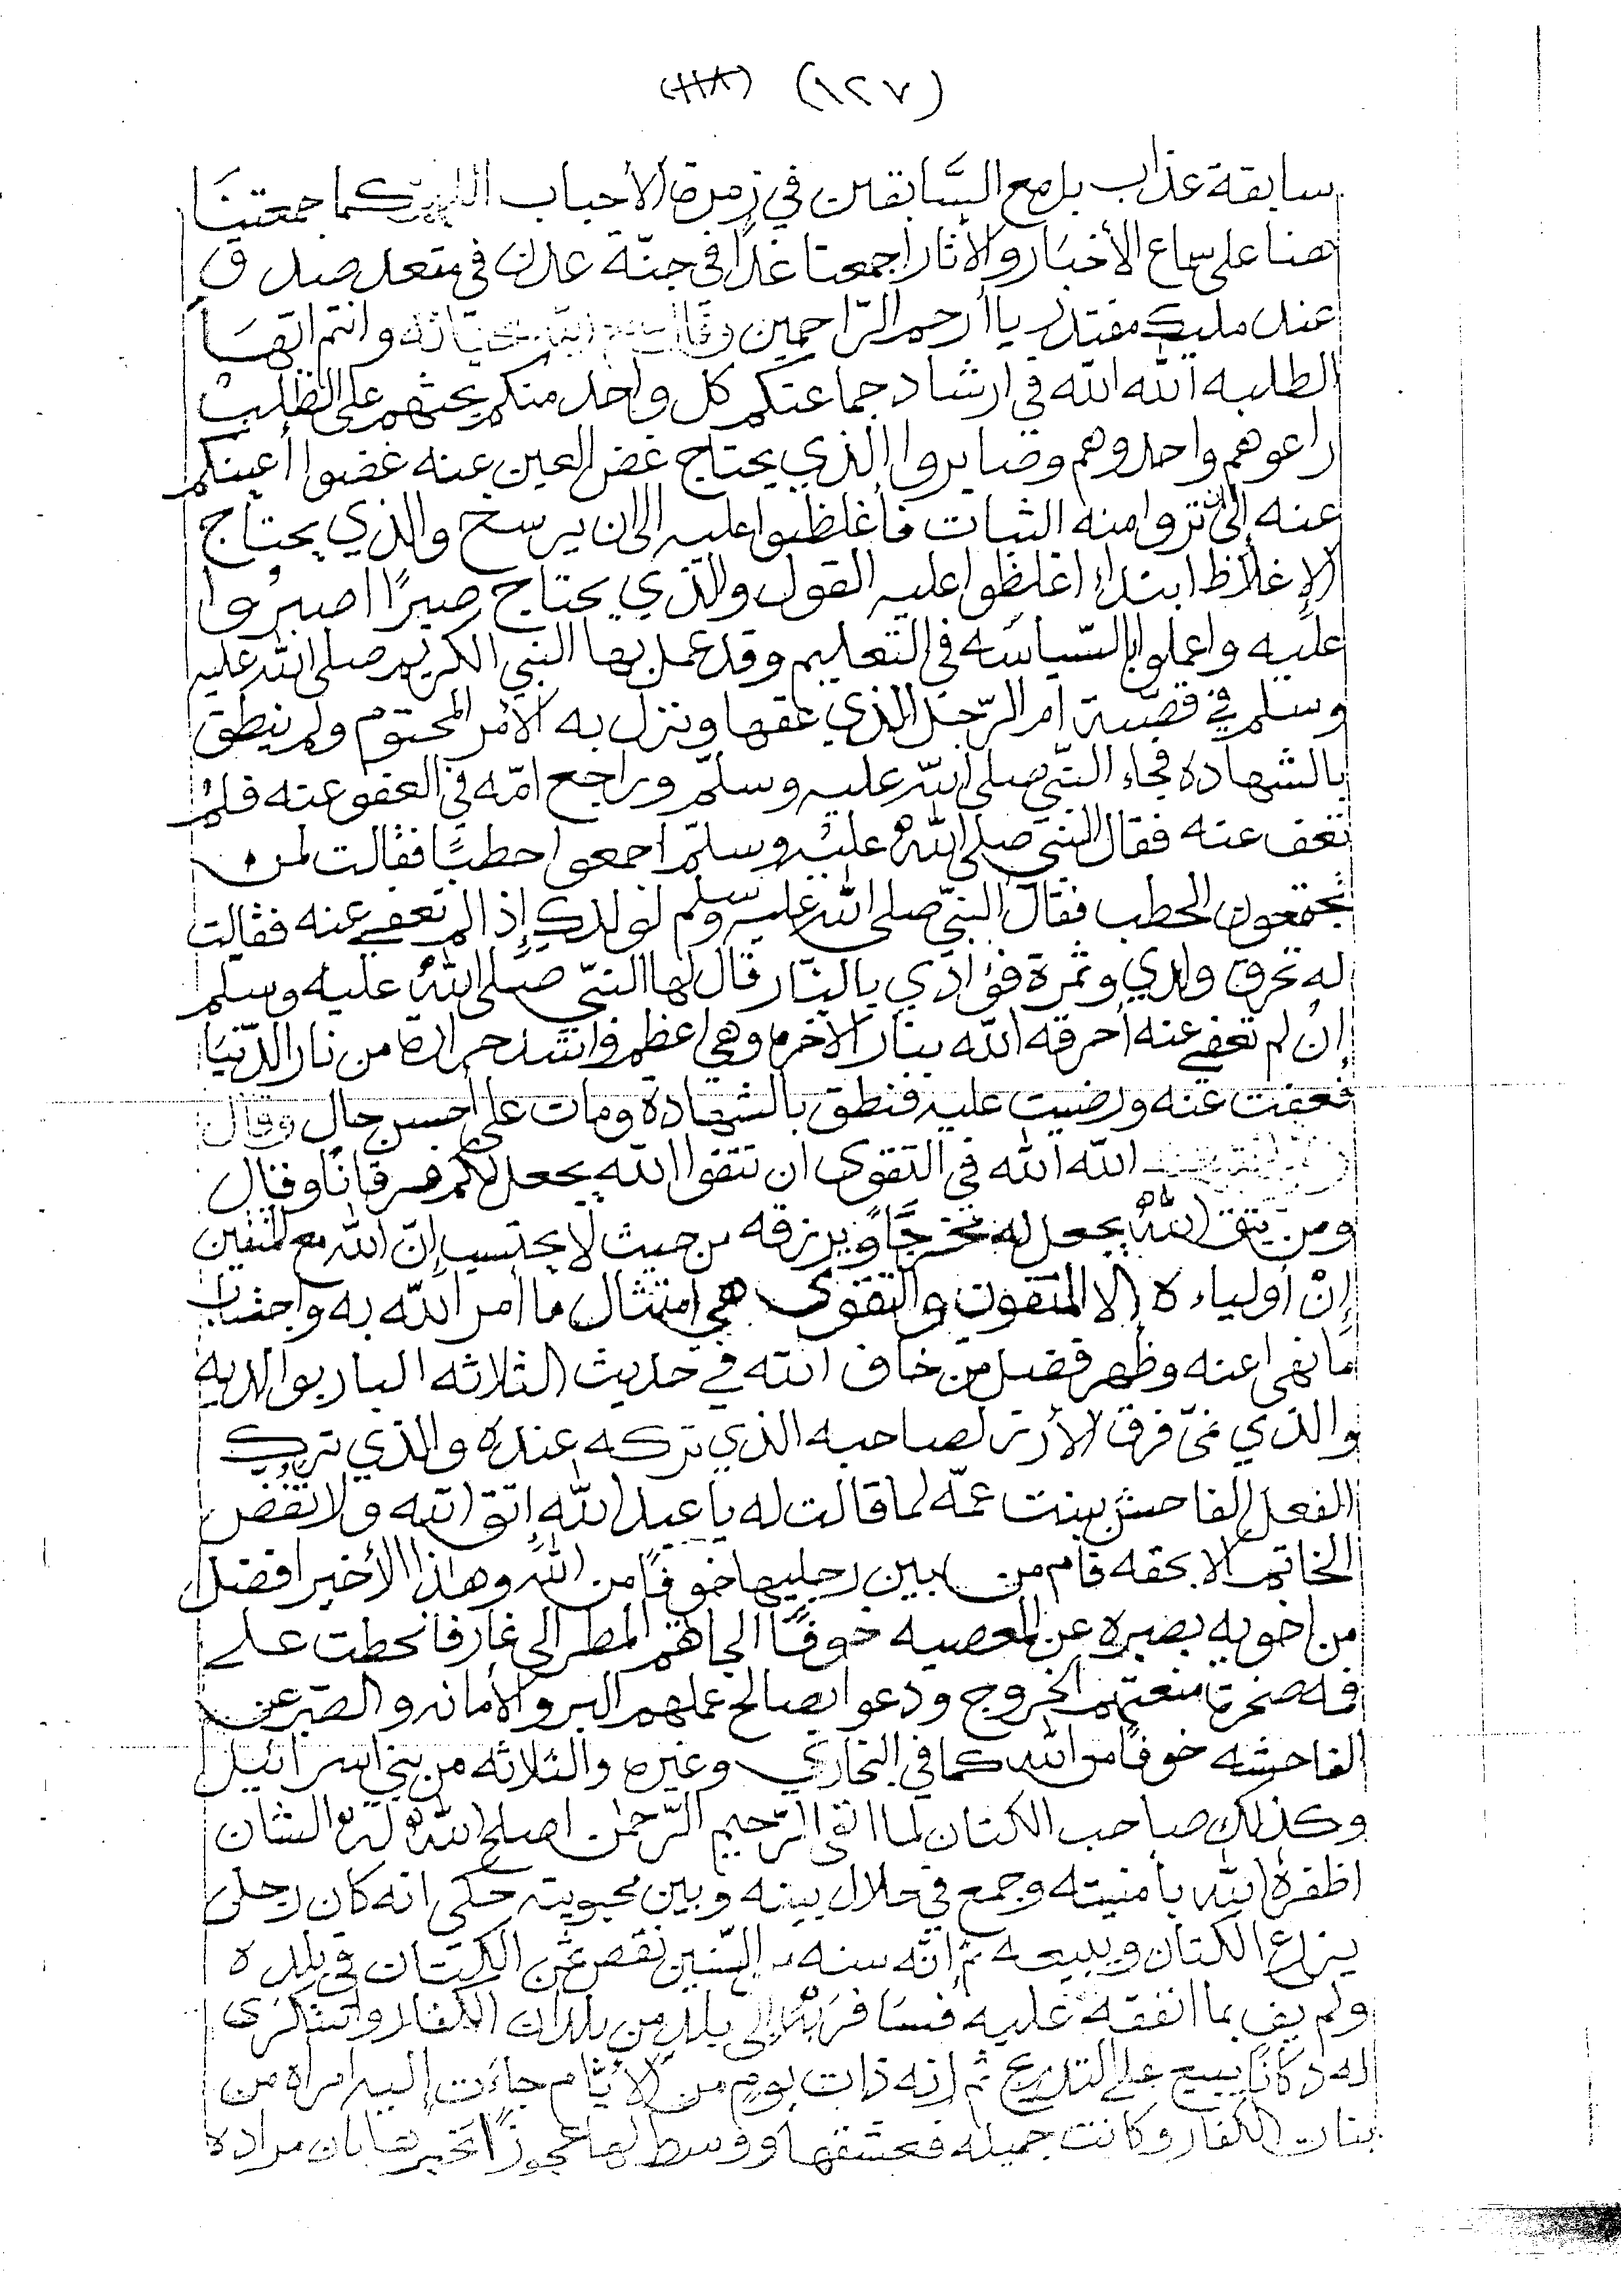 (١٢٧)
سابقة عذاب بل مع السَّابقين في زمرة الأحباب اللهم كما جمعتنَا
هنا على سماع الأخبَار والأثار اجمعنا غدًا في جنّة عدن في مقعد صدق
عند مليك مقتدر ياأرحم الرّاحمين وانتم ايّهَا
الطلبه الله الله في ارشاد جماعتكم كل واحد منكم يحثهم على الطّلب
راعوهم واحدوهم وصابروا الذي يحتاج غض العين عنه غضوا أعينكم
عنه إلى ان تروا منه الثبات فأغلظوا عليه الى ان يرسخ والذي يحتاج
الإغلاظ ابتداء اغلظوا عليه القول والذي يحتاج صبرًا اصبرُوا
عليه واعملوا بالسّياسَه في التعليم وقد عمل بها النبي الكريم صلى الله عليه
وسلم في قصّية ام الرّجل الذي عقها ونزل به الأمر المحتوم ولم ينطق
بالشهاده فجاء النّبي صلى الله عليه وسلّم وراجع امّه في العفو عنه فلمْ
تعف عنه فقال النبي صلى الله عليه وسلّم اجمعوا حطبًا فقالت لمن
تجمعون الحطب فقال النبيّ صلى الله عليه وسلم لولدك إذ الم تعفي عنه فقالت
له تحرق ولدي وثمرة فؤادي بالنّار قال لها النبّي صلى اللهُ عليه وسلم
إنْ لم تعفي عنه أحرقه الله بنار الأخره وهي اعظم واشد حرارة من نار الدّنيَا
فعفت عنه ورضيت عليه فنطق بالشهادة ومات على أحسن حال وقال
الله الله في التقوى ان تتقوا الله يجعل لكم فرقانًا وقال
ومن يتق اللهَ يجعل له مخرجًا ويرزقه من حيث لا يحتسب إنّ الله مع المتقين
إنْ أولياءه إلا المتقون والتقوى هي امتثال ما أمر الله به واجتناب
ما نهى عنه وظهر فضل من خاف الله في حديث الثلاثه البار بوالديه
والذي نمّى فرق الأرز لصاحبه الذي تركه عنده والذي ترك
الفعل الفاحش ببنت عمّه لما قالت له يا عبد الله إتق الله ولا تفض
الخاتم الا بحقه قام من بين رجليها خوفًا من الله وهذا الأخير افضل
من اخويه بصبره عن المعصيه خوفًا الجاهم المطر الى غار فانحطت على
فمه صخرة منعتهم الخروج ودعوا بصالح عملهم البر والأمانه والصّبر عن
الفاحشه خوفًا من الله كما في البخاري وغيره والثلاثه من بني اسرائيل
وكذلك صاحب الكتان لما اتقى الرّحيم الرّحمن اصلح الله له الشان
اظفره الله بأمنيته وجمع في حلال بينه وبين محبوبته حكى انه كان رجل
يزرع الكتان ويبيعه ثم إنّه سنه من السّنين نقص ثمن الكتان في بلده
ولم يف بما انفقه عليه فسَافر به إلى بلد من بلدان الكفار واتّكرى
له دكانًا يبيع على التدريج ثم إنه ذات يومٍ من الأيّام جاءَت إليه امرأه من
بنات الكفار وكانت جميله فعشقها ووسط لها عجوزًا تخبرها بان مراده